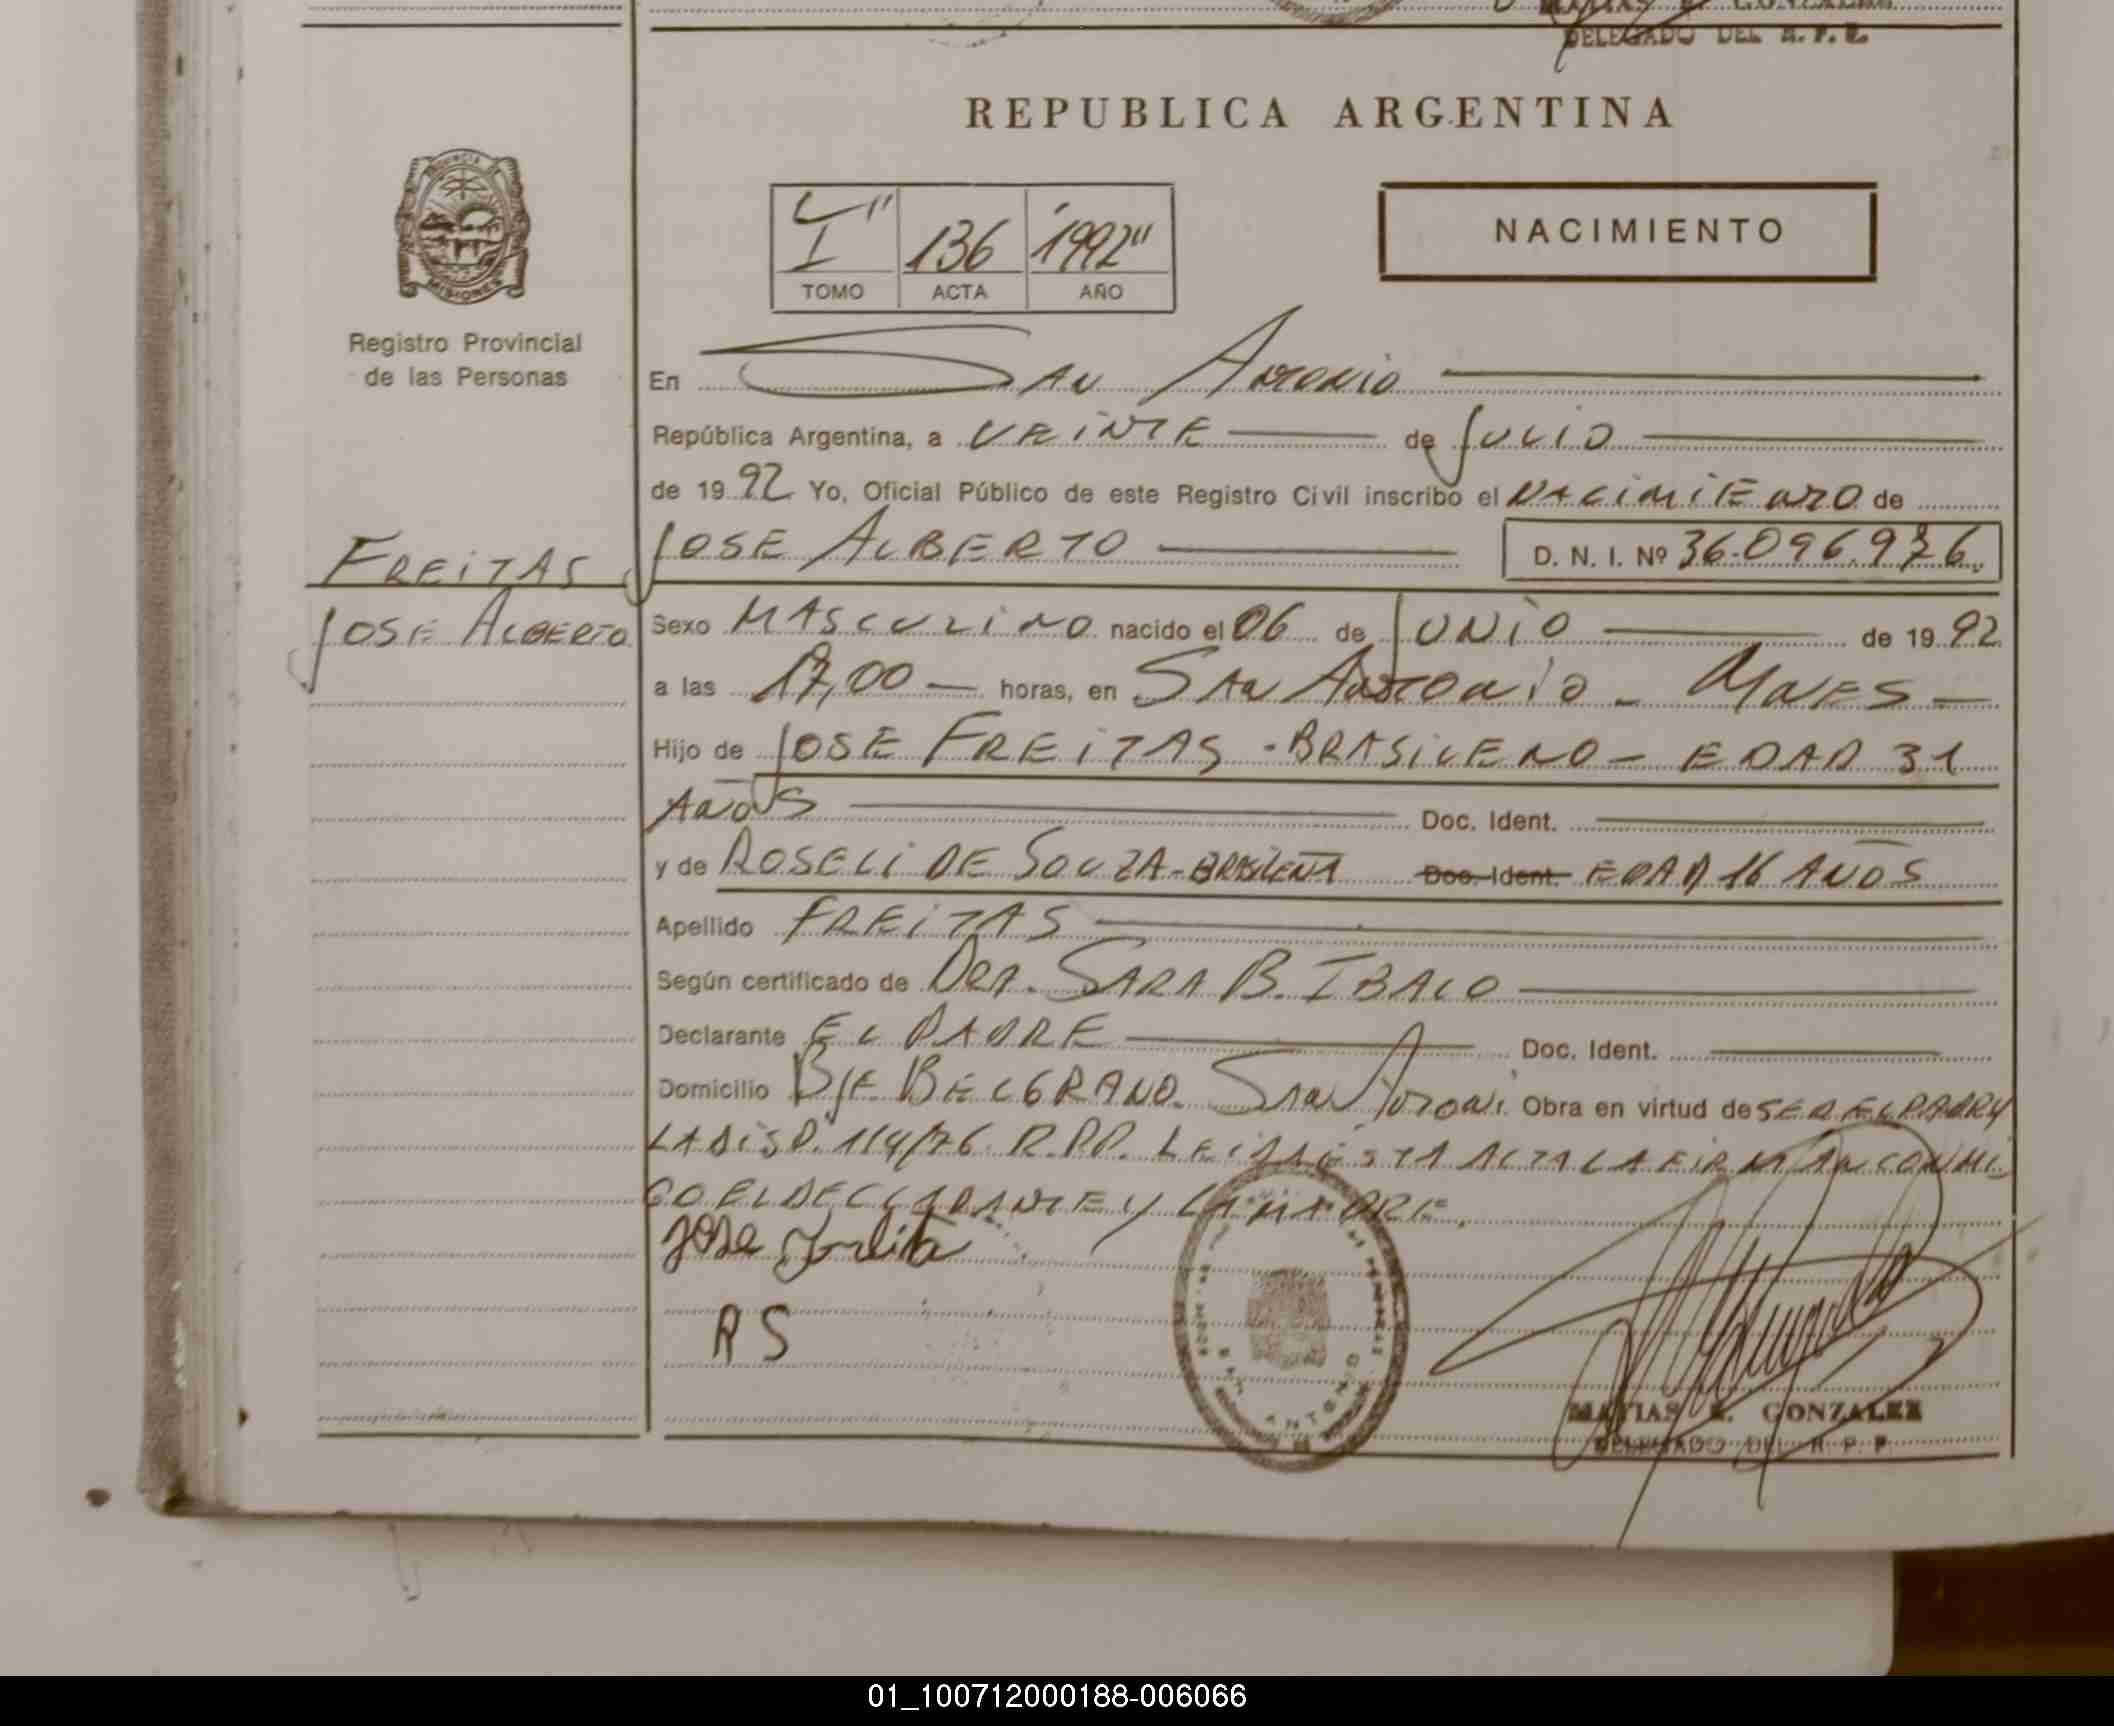 DELEGADO DEL R. P. P.
REPUBLICA ARGENTINA
PROVINCIA
MISIONES
Registro Provincial
de las Personas
I" 136 "1992"
TOMO ACTA AÑO
NACIMIENTO
En SAN ANTONIO
República Argentina, a VEINTE de JULIO
de 19 92 Yo, Oficial Público de este Registro Civil inscribo el NACIMIENTO de
JOSE ALBERTO D. N. I. Nº 36.096.976.
FREITAS
JOSE ALBERTO
Sexo MASCULINO nacido el 06 de JUNIO de 19 92
a las 17,00 horas, en SAN ANTONIO - MNES -
Hijo de JOSE FREITAS - BRASILENO - EDAD 31
AÑOS Doc. Ident.
y de ROSELI DE SOUZA - BRASILEÑA Doc. Ident. EDAD 16 AÑOS
Apellido FREITAS
Según certificado de DRA. SARA B. IBALO
Declarante EL PADRE Doc. Ident.
Domicilio Bje BELGRANO. SAN ANTONI. Obra en virtud de SER EL PADRE Y
LA DISP. 114/76. R.P.P. LEIDA ESTA ACTA LA FIRMAN CONMI
GO EL DECLARANTE Y LA MADRE.
Jose Freita
RS
SAN ANTONIO
MATIAS GONZALEZ
DELEGADO DEL R. P. P.
01_100712000188-006066